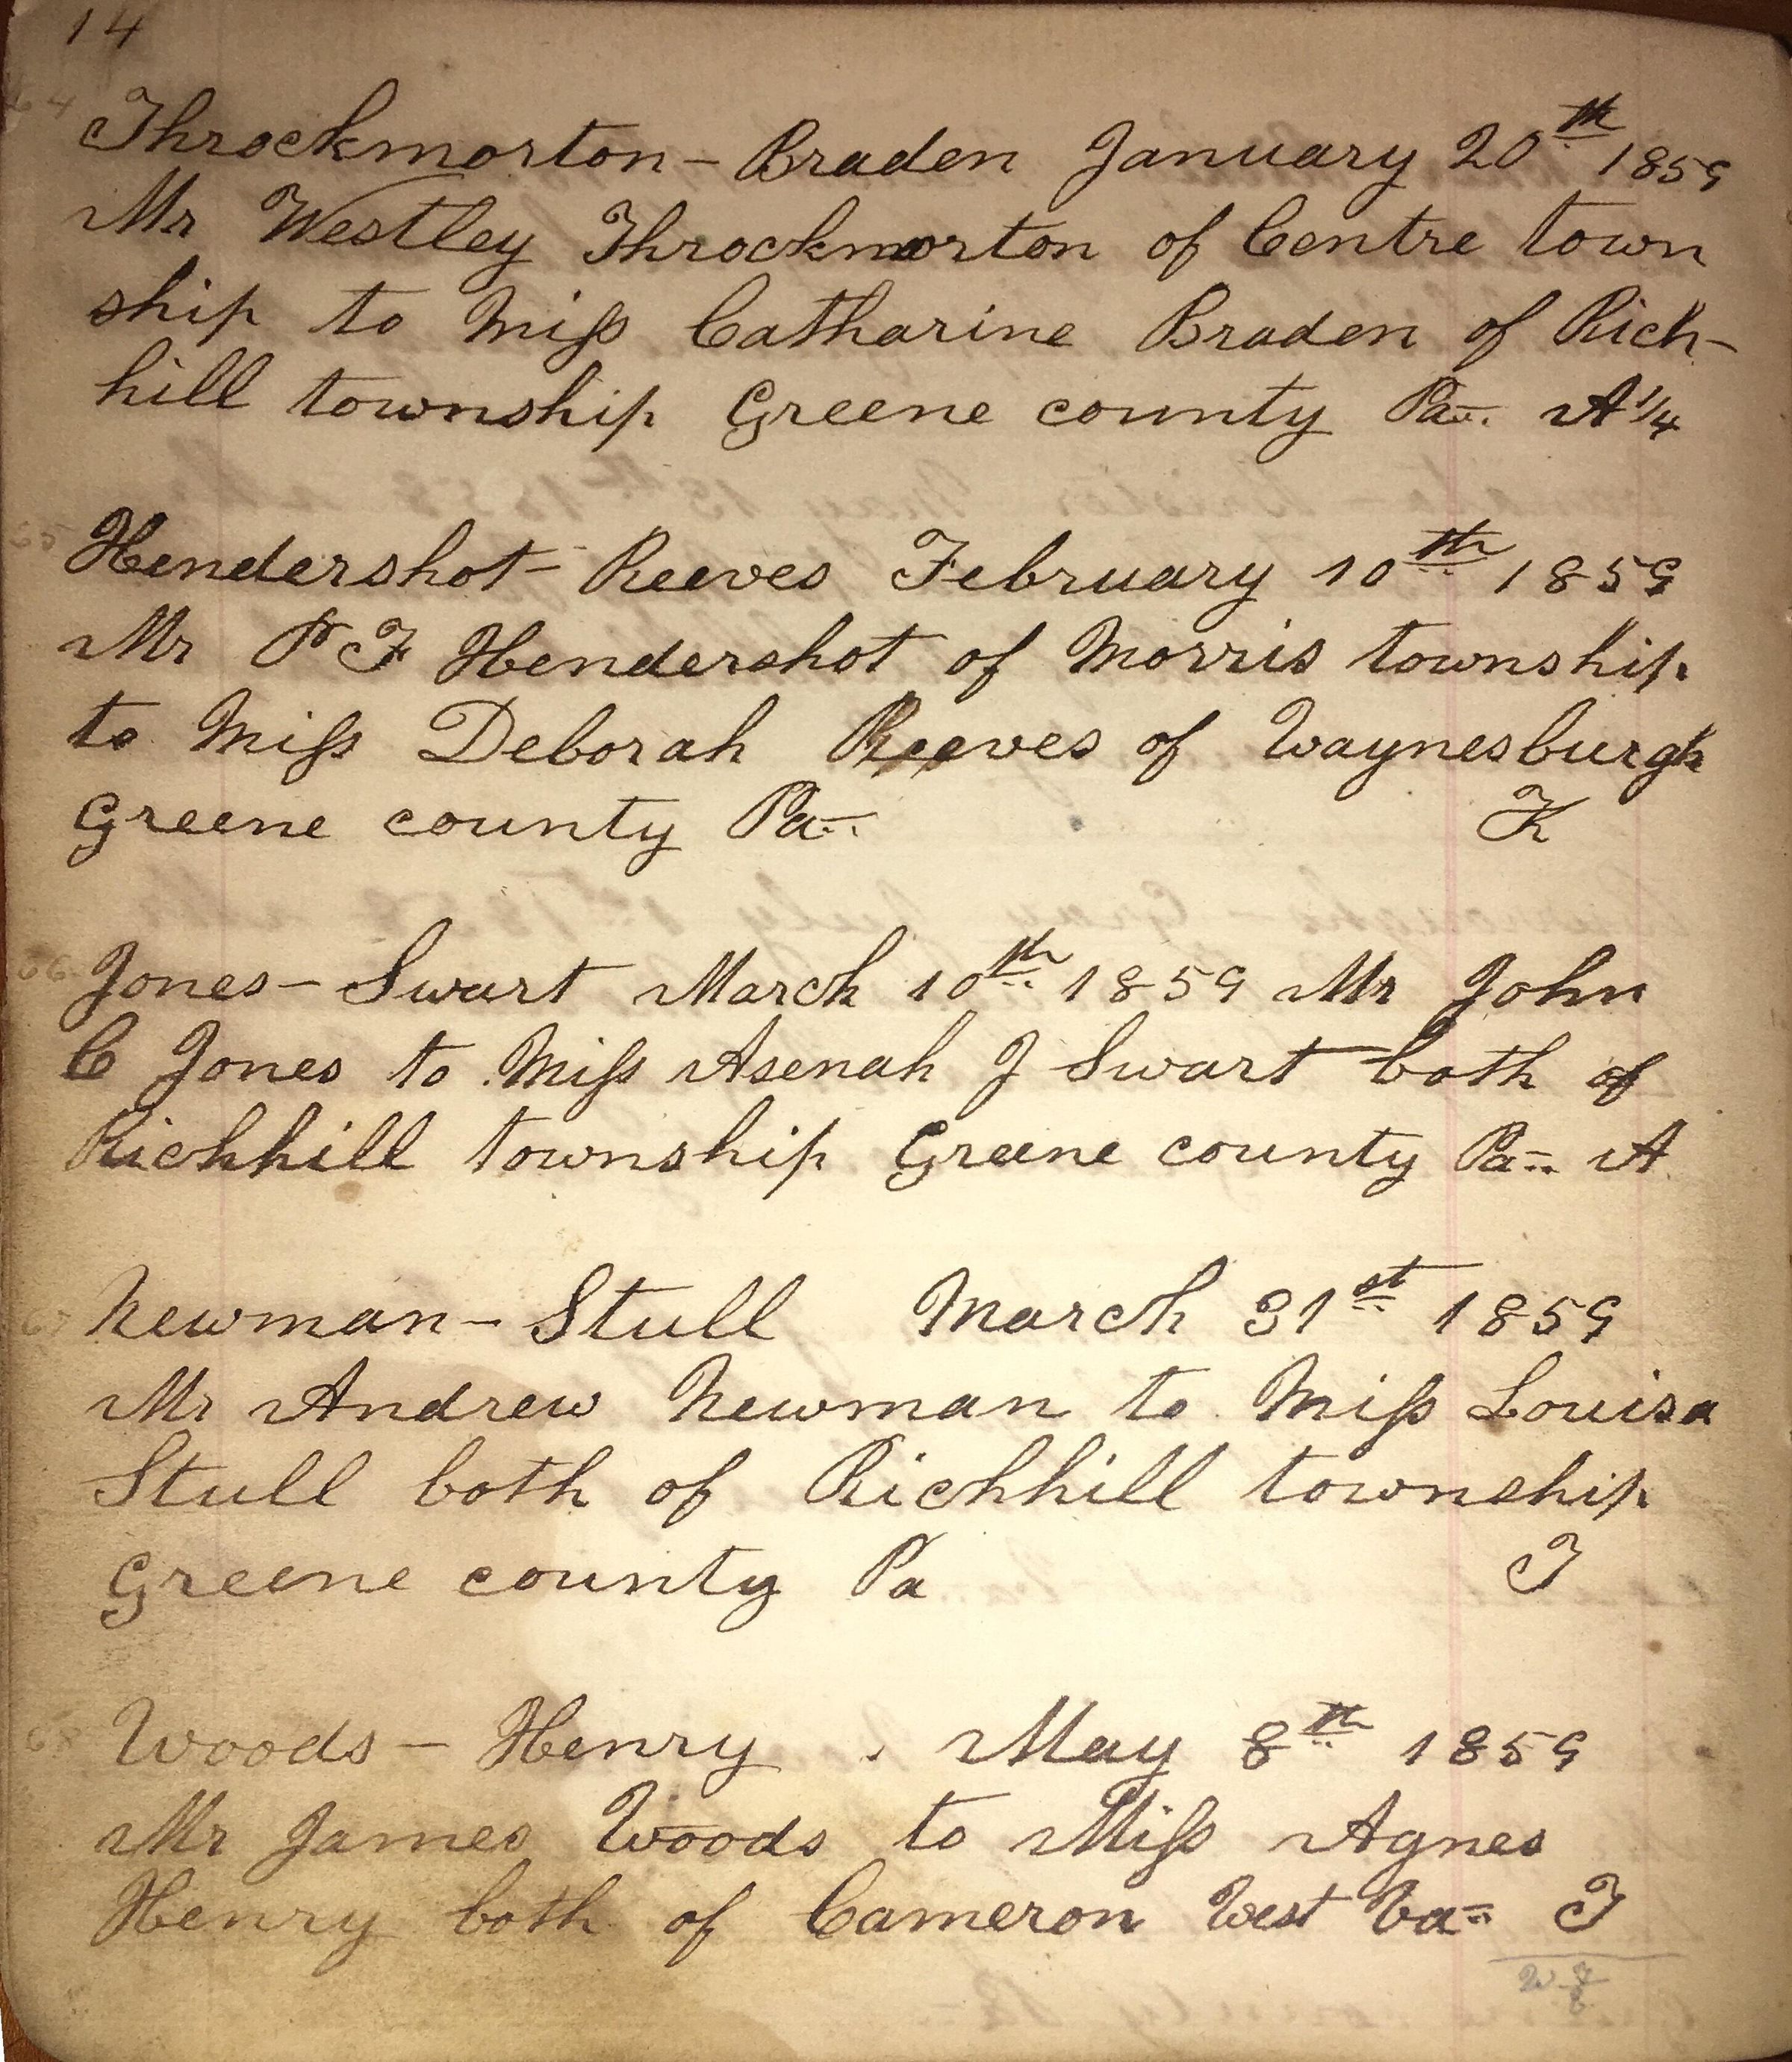 14
64
Throckmorton - Braden January 20th 1859
Mr Westley Throckmorton of Centre town
ship to Miss Catharine Braden of Rich-
hill township Greene county Pa. A 1/4
65
Hendershot - Reeves February 10th 1859
Mr P F Hendershot of Morris township
to Miss Deborah Reeves of Waynesburgh
Greene county Pa. K
66
Jones - Swart March 10th 1859 Mr John
C Jones to Miss Asenah J Swart both of
Richhill township Greene county Pa. A
67
Newman - Stull March 31st 1859
Mr Andrew Newman to Miss Louisa
Stull both of Richhill township
Greene county Pa J
68
Woods - Henry . May 8th 1859
Mr James Woods to Miss Agnes
Henry both of Cameron West Va J